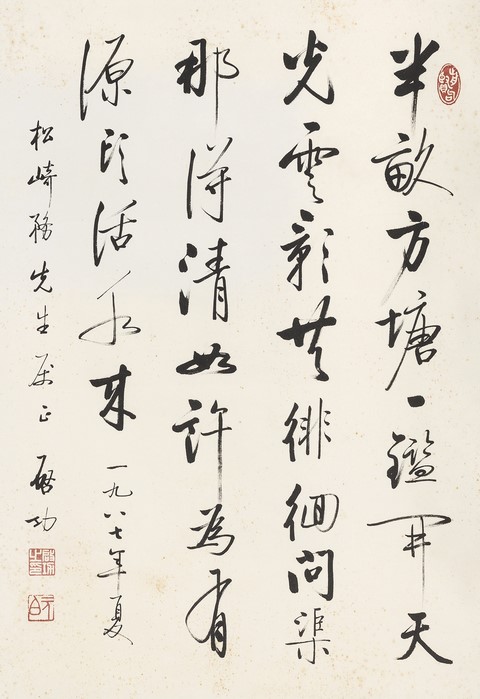 半畝方塘一鑑開天
光雲影共徘徊問渠
那得清如許為有
源頭活水來 一九八七年夏
松崎務先生属正 啓功